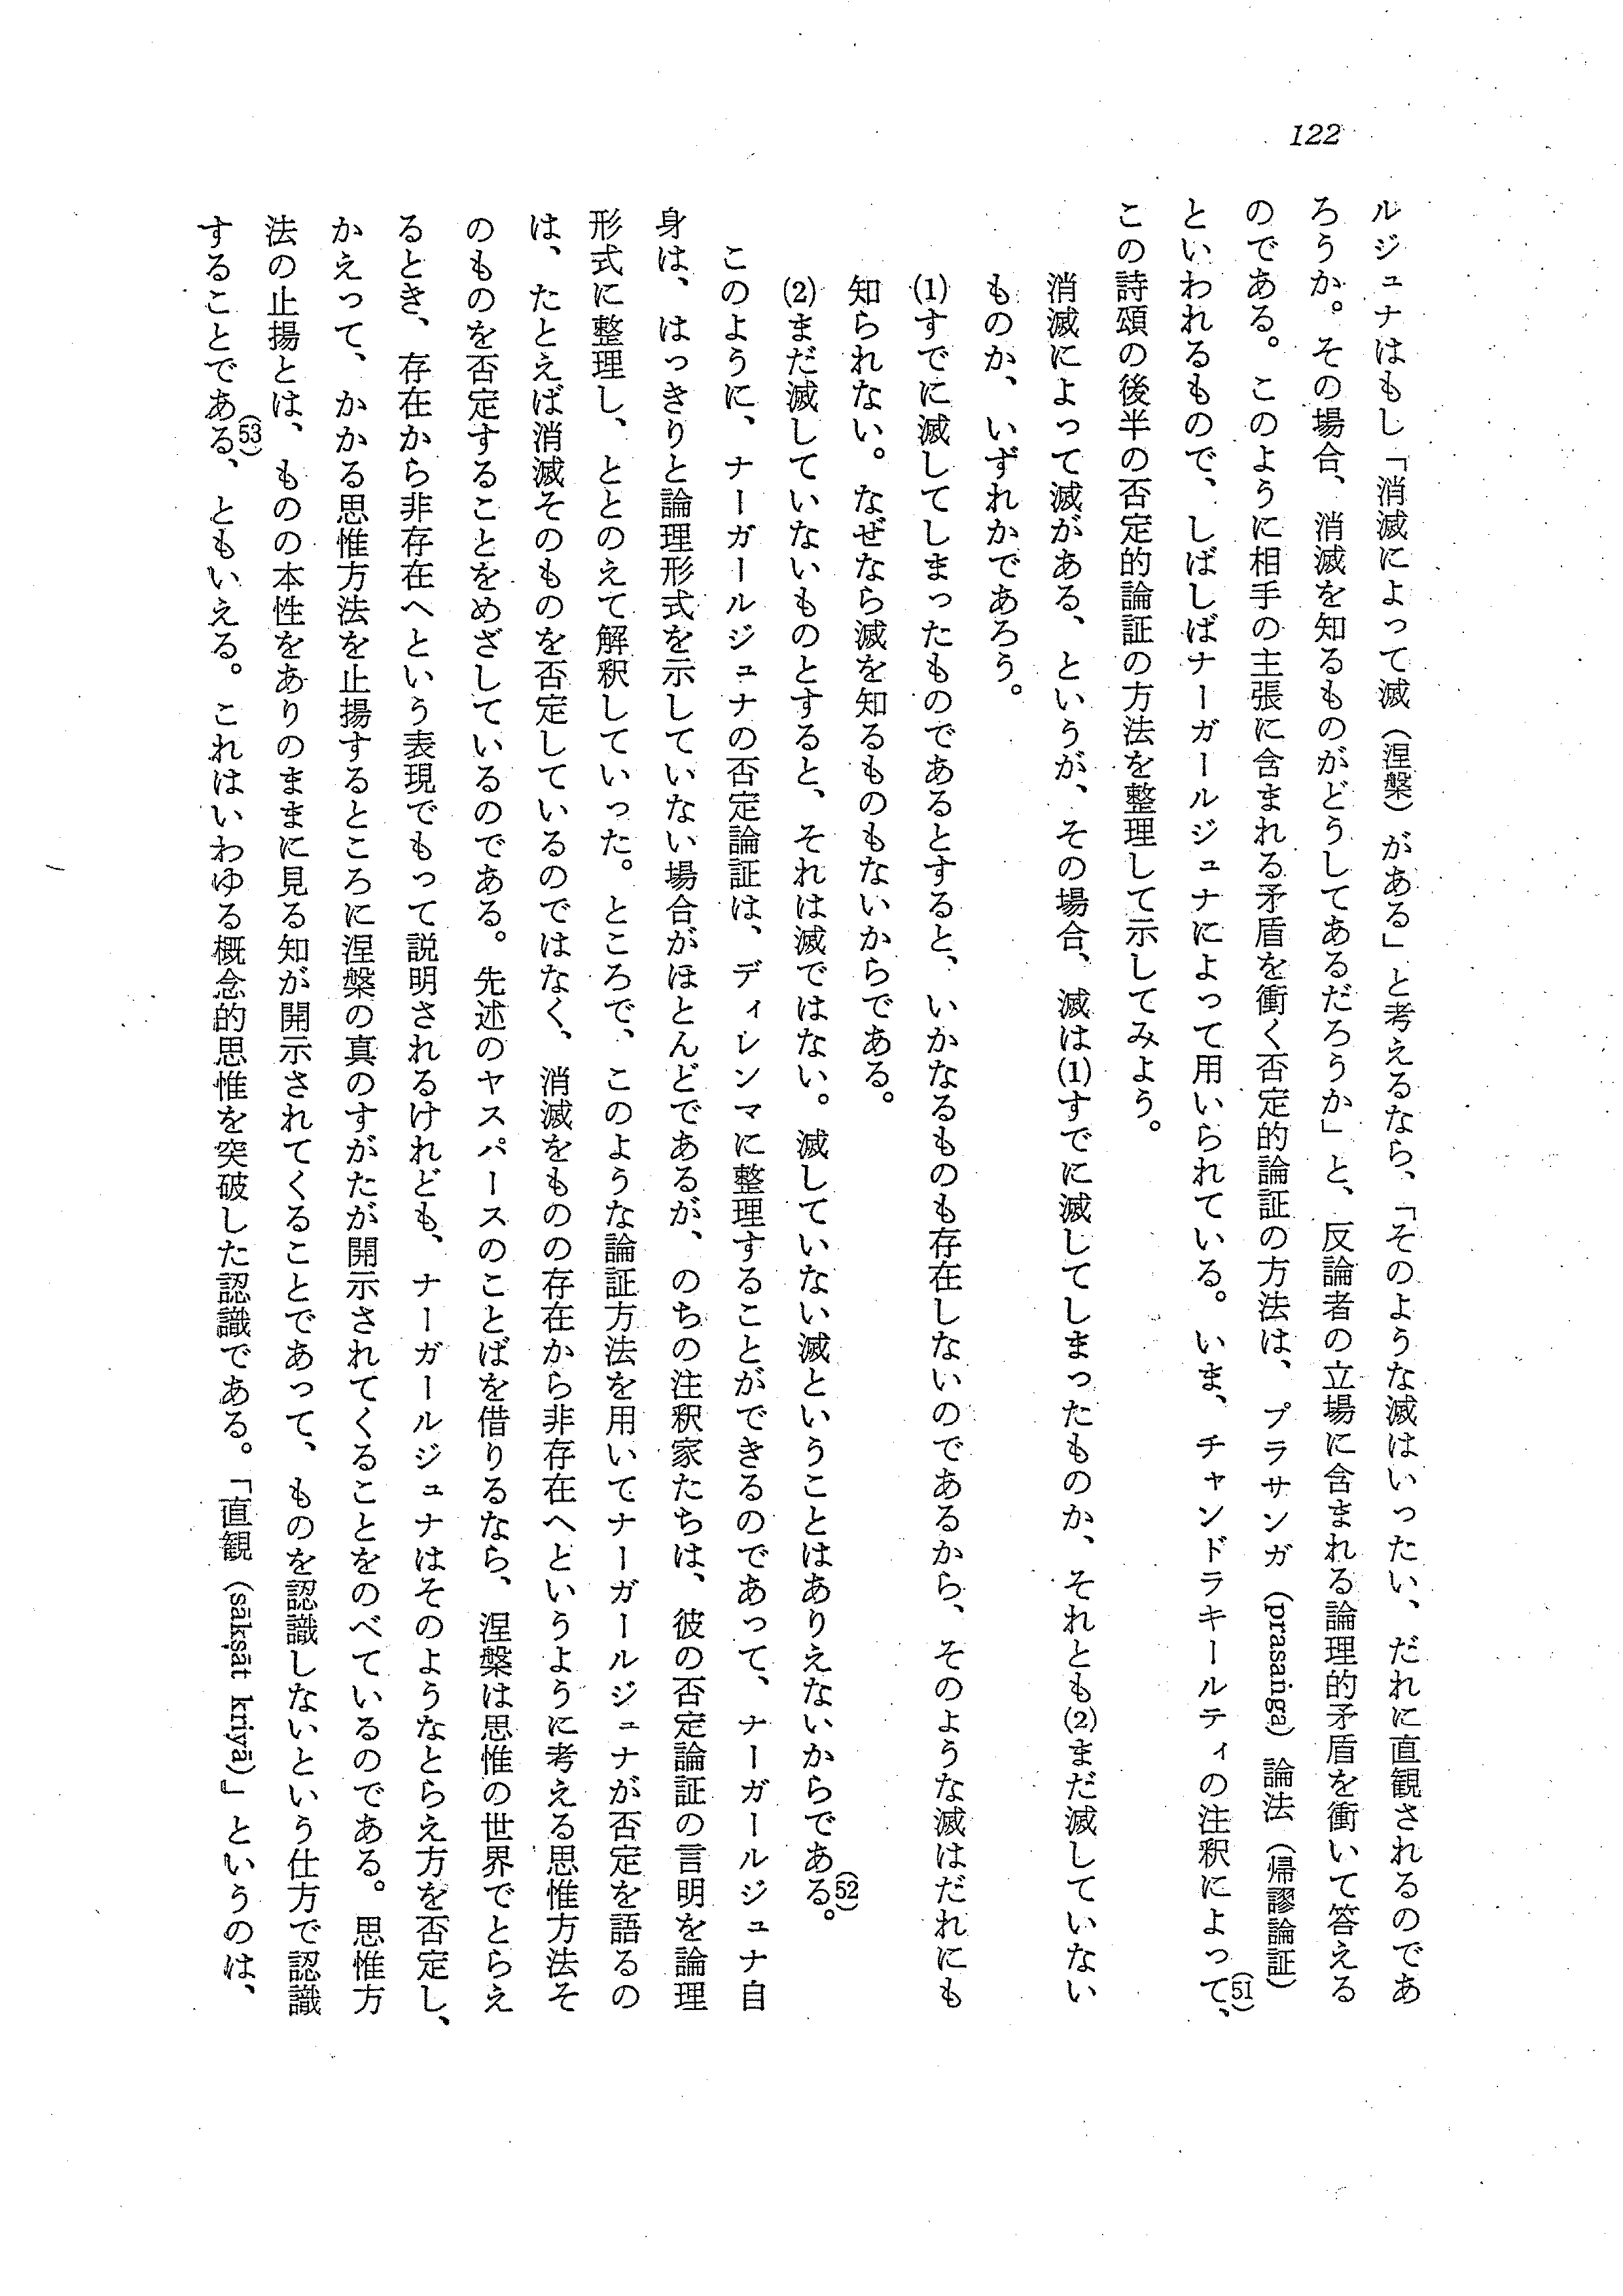 122
ルジュナはもし「消滅によって滅（涅槃）がある」と考えるなら、「そのような滅はいったい、だれに直観されるのであ
ろうか。その場合、消滅を知るものがどうしてあるだろうか」と、反論者の立場に含まれる論理的矛盾を衝いて答える
のである。このように相手の主張に含まれる矛盾を衝く否定的論証の方法は、プラサンガ（prasaṅga）論法（帰謬論証）
といわれるもので、しばしばナーガールジュナによって用いられている。いま、チャンドラキールティの注釈によって、(51)
この詩頌の後半の否定的論証の方法を整理して示してみよう。
消滅によって滅がある、というが、その場合、滅は(1)すでに滅してしまったものか、それとも(2)まだ滅していない
ものか、いずれかであろう。
(1)すでに滅してしまったものであるとすると、いかなるものも存在しないのであるから、そのような滅はだれにも
知られない。なぜなら滅を知るものもないからである。
(2)まだ滅していないものとすると、それは滅ではない。滅していない滅ということはありえないからである。(52)
このように、ナーガールジュナの否定論証は、ディレンマに整理することができるのであって、ナーガールジュナ自
身は、はっきりと論理形式を示していない場合がほとんどであるが、のちの注釈家たちは、彼の否定論証の言明を論理
形式に整理し、ととのえて解釈していった。ところで、このような論証方法を用いてナーガールジュナが否定を語るの
は、たとえば消滅そのものを否定しているのではなく、消滅をものの存在から非存在へというように考える思惟方法そ
のものを否定することをめざしているのである。先述のヤスパースのことばを借りるなら、涅槃は思惟の世界でとらえ
るとき、存在から非存在へという表現でもって説明されるけれども、ナーガールジュナはそのようなとらえ方を否定し、
かえって、かかる思惟方法を止揚するところに涅槃の真のすがたが開示されてくることをのべているのである。思惟方
法の止揚とは、ものの本性をありのままに見る知が開示されてくることであって、ものを認識しないという仕方で認識
することである、(53)ともいえる。これはいわゆる概念的思惟を突破した認識である。「直観（sākṣāt kriyā）」というのは、